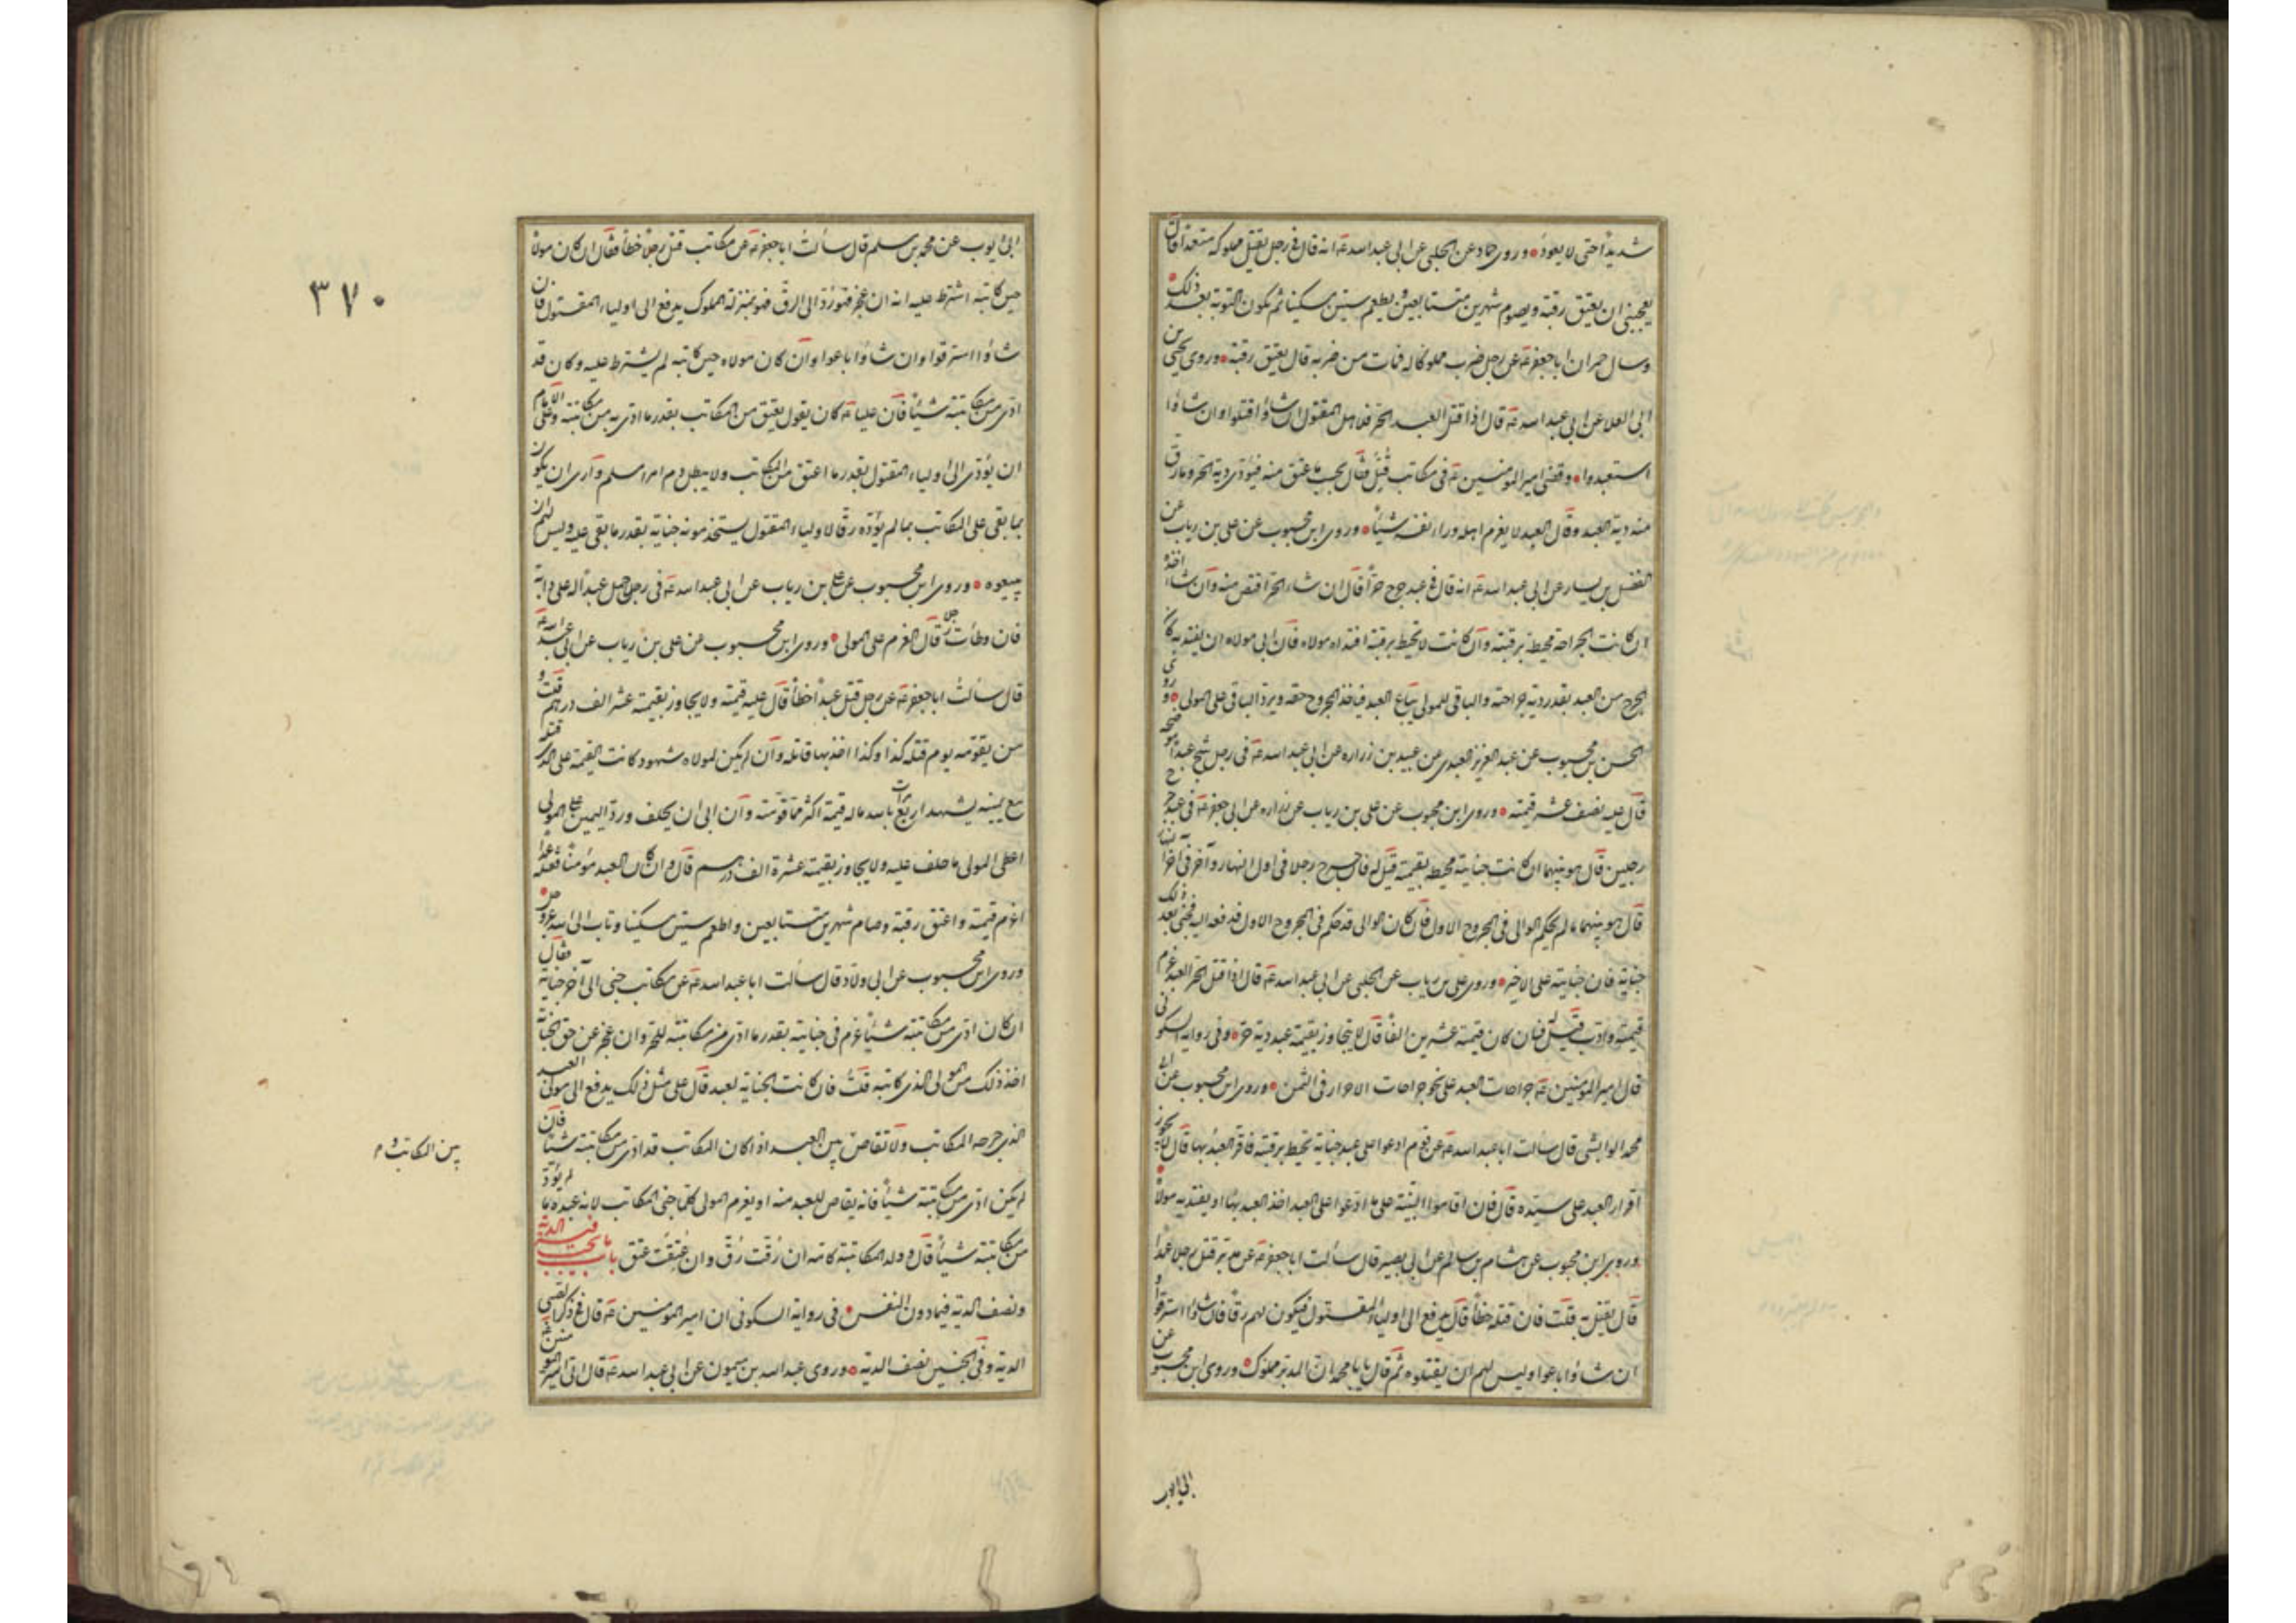 شديدا حتى لا يعود وروى حماد عن الحلبي عن ابي عبد الله ع انه قال في رجل يقتل مملوكه متعمدا قال
يعجبني ان يعتق رقبة ويصوم شهرين متتابعين ويطعم ستين مسكينا ثم يكون التوبة بعد ذلك
وسال حمران ابا جعفر ع عن رجل ضرب مملوكا له فمات من ضربه قال يعتق رقبة وروى يحيى بن
ابي العلا عن ابي عبد الله ع قال اذا قتل العبد الحر فلاهل المقتول ان شاؤا قتلوا وان شاؤا
استعبدوا وقضى امير المومنين ع في مكاتب قتل قال يحسب ما عتق منه فيؤدى دية الحر وما رق
منه دية العبد وقال العبد لا يغرم اهله وراء نفسه شيئا وروى ابن محبوب عن علي بن رياب عن
الفضل بن يسار عن ابي عبد الله ع انه قال في عبد جرح حرا قال ان شاء الحر اقتص منه وان شاء اخذه
ان كانت الجراحة تحيط برقبته وان كانت لا تحيط برقبته افتداه مولاه فان ابى مولاه ان يفتديه كان
للمجروح من العبد بقدر دية جراحته والباقي للمولى يباع العبد فياخذ المجروح حقه ويرد الباقي على المولى وروى
الحسن بن محبوب عن عبد العزيز العبدي عن عبيد بن زراره عن ابي عبد الله ع في رجل شج عبدا موضحة
قال عليه نصف عشر قيمته وروى ابن محبوب عن علي بن رياب عن زراره عن ابي جعفر ع في عبد جرح
رجلين قال هو بينهما ان كانت جناية تحيط بقيمته قيل له فان جرح رجلا في اول النهار وآخر في آخر النهار
قال هو بينهما ما لم يحكم الوالي في المجروح الاول فان كان الوالي قد حكم في المجروح الاول فدفعه اليه فجنى بعد ذلك
جناية فان جنايته على الاخير وروى علي بن رياب عن الحلبي عن ابي عبد الله ع قال اذا قتل الحر العبد غرم
قيمته وادب قيل له فان كان قيمته عشرين الفا قال لا يتجاوز بقيمة عبد دية حر وفي رواية السكوني
قال امير المومنين ع جراحات العبد على نحو جراحات الاحرار في الثمن وروى ابن محبوب عن ابي
محمد الوابشي قال سالت ابا عبد الله ع عن قوم ادعوا على عبد جناية تحيط برقبته فاقر العبد بها قال لا يجوز
اقرار العبد على سيده قال فان اقاموا البينة على ما ادعوا على العبد اخذ العبد بها او يفتديه مولاه
وروى ابن محبوب عن هشام بن سالم عن ابي بصير قال سالت ابا جعفر ع عن مدبر قتل رجلا عمدا
قال يقتل به قلت فان قتله خطأ قال يدفع الى اولياء المقتول فيكون لهم رقا فان شاؤا استرقوا و
ان شاؤا باعوا وليس لهم ان يقتلوه ثم قال يا با محمد ان المدبر مملوك وروى ابن محبوب عن
ابي ايوب
٣٧٠
ابي ايوب عن محمد بن مسلم قال سألت ابا جعفر ع عن مكاتب قتل رجلا خطأ فقال ان كان مولاه
حين كاتبه اشترط عليه انه ان عجز فهو رد الى الرق فهو بمنزلة المملوك يدفع الى اولياء المقتول فان
شاؤا استرقوا وان شاؤا باعوا وان كان مولاه حين كاتبه لم يشترط عليه وكان قد
ادى من مكاتبته شيئا فان عليا ع كان يقول يعتق من المكاتب بقدر ما ادى به من مكاتبته وعلى الامام
ان يؤدى الى اولياء المقتول بقدر ما اعتق من المكاتب ولا يبطل دم امرء مسلم وارى ان يكون
بما بقى على المكاتب بما لم يؤده رقا لاولياء المقتول يستخدمونه جناية بقدر ما بقى عليه وليس لهم ان
يبيعوه وروى ابن محبوب عن علي بن رياب عن ابي عبد الله ع في رجل حمل عبدا له على دابة
فان وطأت رجلا قال الغرم على المولى وروى ابن محبوب عن علي بن رياب عن ابي عبد الله ع
قال سألت ابا جعفر ع عن رجل قتل عبدا خطأ قال عليه قيمته ولا يجاوز بقيمته عشر الف درهم قلت و
من يقومه يوم قتله كذا وكذا اخذ بها قاتله وان لم يكن لمولاه شهود كانت القيمة على الذي قتله
مع يمينه يشهد اربع مرات بالله ما له قيمة اكثر مما قومته وان ابى ان يحلف ورد اليمين على المولى
اعطى المولى ما حلف عليه ولا يجاوز بقيمته عشرة الف درهم قال وان كان العبد مؤمنا فقتله عمدا
اغرم قيمته واعتق رقبة وصام شهرين متتابعين واطعم ستين مسكينا وتاب الى الله عز وجل
وروى ابن محبوب عن ابي ولاد قال سألت ابا عبد الله ع عن مكاتب جنى الى آخر جناية فقال
ان كان ادى من مكاتبته شيئا غرم في جنايته بقدر ما ادى من مكاتبته للحر وان عجز عن حق الجناية
اخذ ذلك من المولى الذي كاتبه قلت فان كانت الجناية لعبد قال على مثل ذلك يدفع الى مولى العبد
الذي جرحه المكاتب ولا تقاص بين العبد اذا كان المكاتب قد ادى من مكاتبته شيئا فان
لم يكن ادى من مكاتبته شيئا فانه يقاص للعبد منه او يغرم المولى كلما جنى المكاتب لانه عبده ما لم يؤد
من مكاتبته شيئا قال وولد المكاتبة كامه ان رقت رق وان عتقت عتق باب ما يجب فيه الدية
ونصف الدية فيما دون النفس في رواية السكوني ان امير المومنين ع قال في ذكر الصبي
الدية وفي الخنين نصف الدية وروى عبد الله بن ميمون عن ابي عبد الله ع قال اتى امير المومنين ع
بين المكاتب و